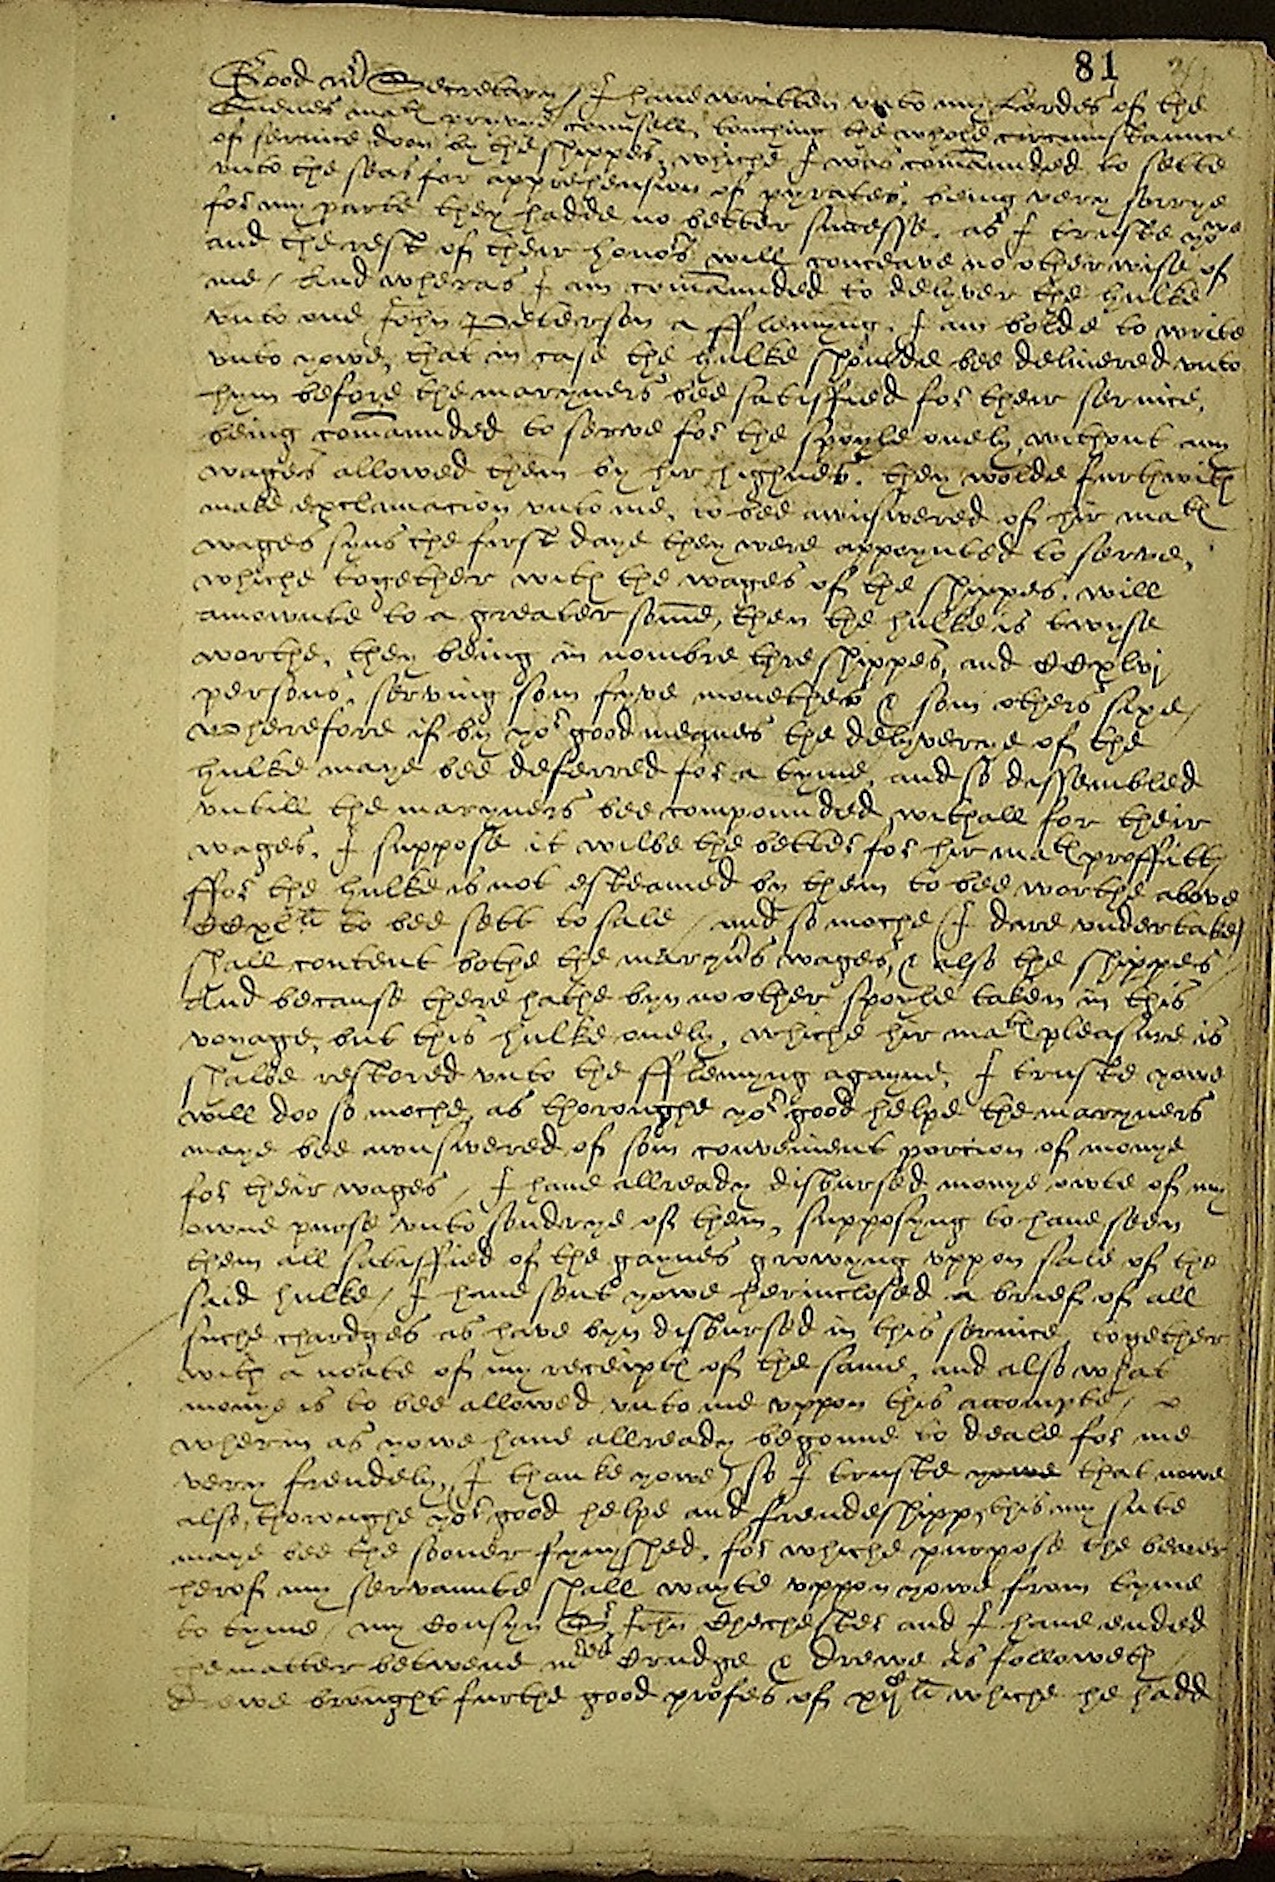 81
Good mr Secretary / I have written unto my Lordes of the
Quenes mates pryvye counsell, touching the whole circumstaunce
of service doon by the shippes, whiche I was comaunded to sette
unto the seas for apprehension of pyrates, being very sorrye
for my parte they hadde no better successe, as I truste yowe
and the rest of their honors will conceave no otherwise of
me / And wheras I am comaunded to delyver the hulke
unto one John Peterson a fflemyng, I am bolde to write
unto yowe, that in case the hulke shoulde bee delivered unto
hym before the maryners bee satisffied for their service,
being comaunded to serve for the spoyle onely, without any
wages allowed them by hir highnes, they wolde furthwith
make exclamacion unto me, to bee awnswered of hir mates
wages syns the first daye they were appoynted to serve,
whiche together with the wages of the shippes, will
amownte to a greater some, then the hulke is twyse
worthe, they being in nombre thre shippes, and CCxlvj
persons, serving som fyve monethes & som others sixe /
Wherefore if by yor good meanes the delyverye of the
hulke maye bee deferred for a tyme, and so dissembled
untill the maryners bee compounded withall for their
wages, I suppose it wilbe the better for hir mates proffitt /
ffor the hulke is not esteamed by them to bee worthe above
CCxl li to bee sett to sale / and so moche (I dare undertake)
shall content bothe the maryners wages, & also the shippes /
And because there hathe byn no other spoyle taken in this
voyage, but this hulke onely, whiche hir mates pleasure is
shalbe restored unto the fflemyng agayne, I truste yowe
will doo so moche, as thoroughe yor good helpe the maryners
maye bee awnswered of som convenient porcion of monye
for their wages / I have allready disbursed monye owte of my
owne purse unto sonderye of them, supposyng to have seen
them all satisffied of the gaynes growyng uppon sale of the
said hulke / I have sent yowe herinclosed a brief of all
suche chardges as have byn disbursed in this service, together
with a noate of my receiptes of the same, and also what
monye is to bee allowed unto me uppon this accompte /
wherin as yowe have allready begonne to deale for me
very frendely, (I thanke yowe) so I truste yowe that nowe
also, thoroughe yor good helpe and frendeshipp, this my sute
maye bee the sooner fynyshed, for whiche purpose the bearer
herof my servaunte shall wayte uppon yowe from tyme
to tyme / my Cousyn Sr John Chechester and I have ended
the matter betwene mres Crudge & Drewe as followeth /
Drewe brought furthe good profes of xij li whiche he hadd